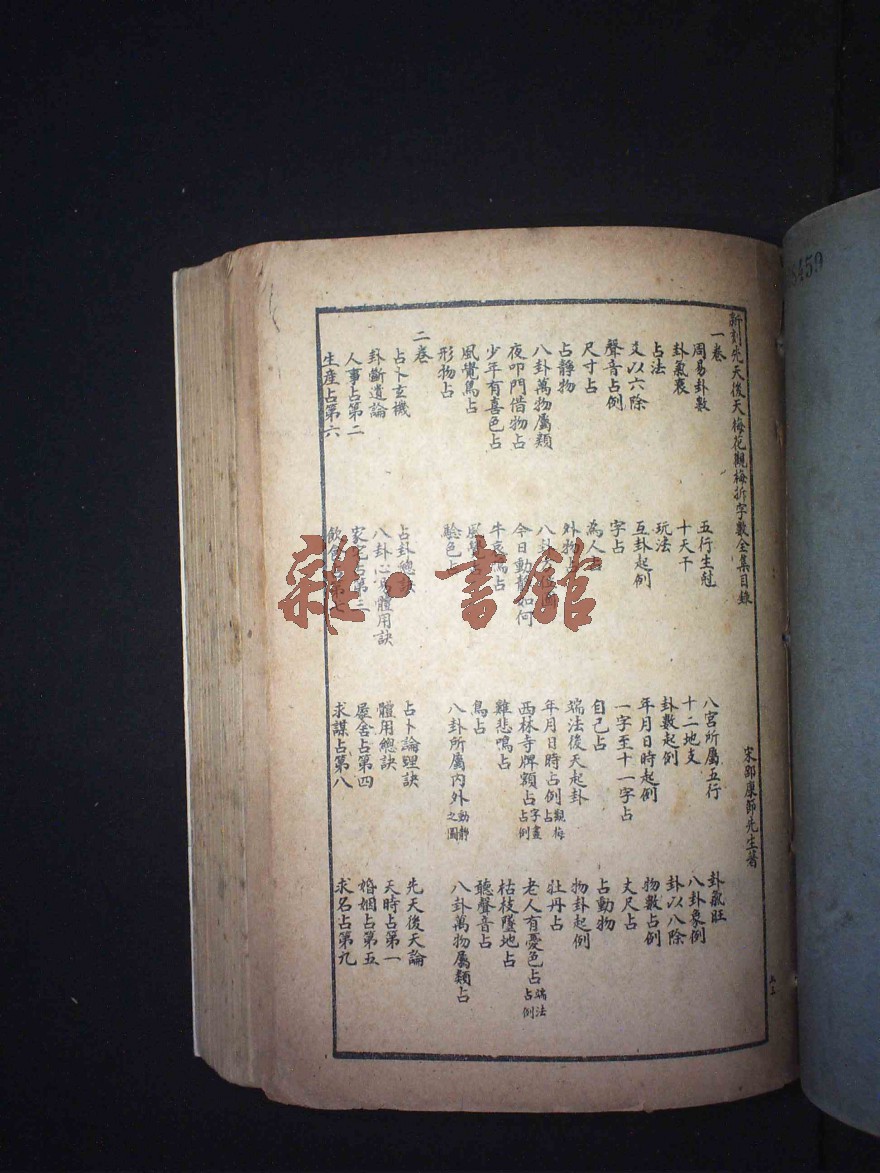 新刻先天後天梅花觀梅拆字數全集目錄 宋邵康節先生著
一卷
周易卦數 五行生剋 八宮所屬五行 卦氣旺
卦氣衰 十天干 十二地支 八卦象例
占法 玩法 卦數起例 卦以八除
爻以六除 互卦起例 年月日時起例 物數占例
聲音占例 字占 一字至十一字占 丈尺占
尺寸占 為人占 自己占 占動物
占静物 外物占 端法後天起卦 物卦起例
八卦萬物屬類 八卦 年月日時占例觀梅占 牡丹占
夜叩門借物占 今日動靜如何 西林寺牌額占字畫占例 老人有憂色占端法占例
少年有喜色占 牛哀鳴占 雞悲鳴占 枯枝墜地占
風覺鳥占 風覺占 鳥占 聽聲音占
形物占 驗色占 八卦所屬內外動静之圖 八卦萬物屬類占
二卷
占卜玄機 占卦總訣 占卜論理訣 先天後天論
卦斷遺論 八卦心易體用訣 體用總訣 天時占第一
人事占第二 家宅占第三 屋舍占第四 婚姻占第五
生產占第六 飲食占第七 求謀占第八 求名占第九
雜·書館
8459